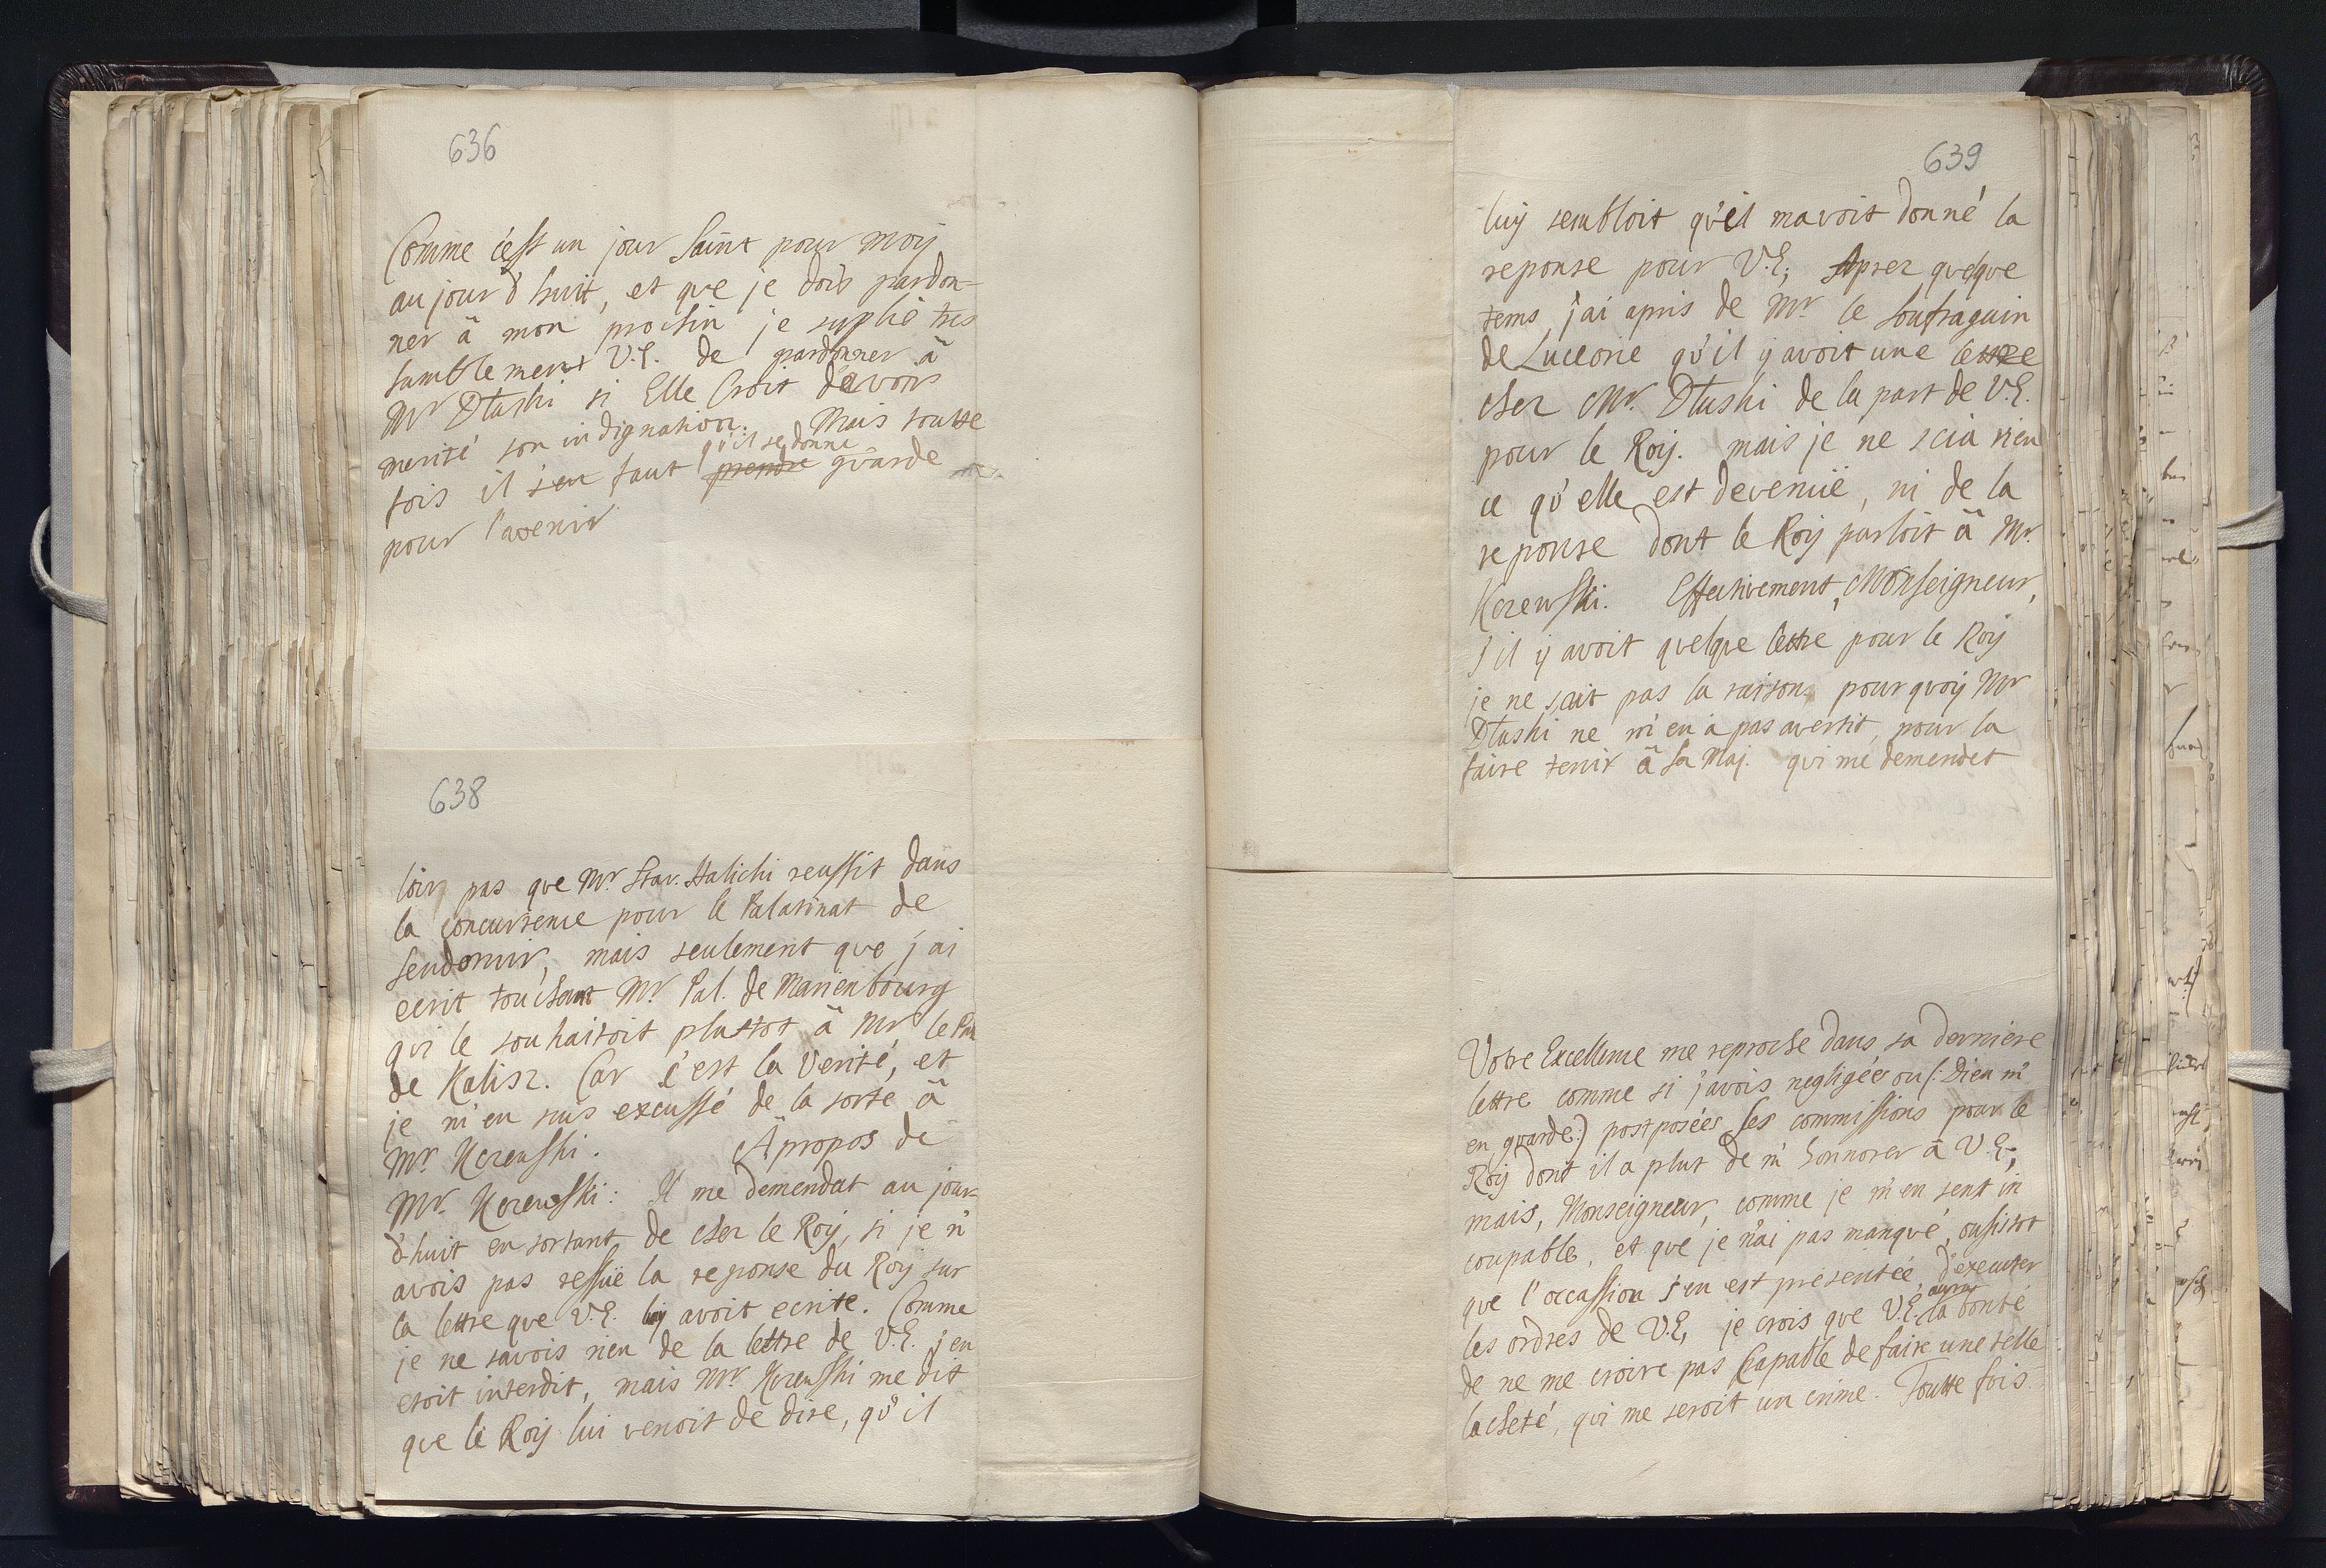 636
Comme c'est un jour Saint pour moÿ
aujourd'huit, et que je dois pardon-
ner â mon prochin je suplie tres
humblement V.E. de pardonner â
Mr Dłuski si Elle Croit d'avoir
merité son indignation. Mais toutte
qu'il se donne
fois il s'en faut prendre guarde
pour l'avenir
638
loir pas que Mr. Star. Halicki reussit dans
la concurrence pour le Palatinat de
Sendomir, mais seulement que j'ai
ecrit touchant Mr. Pal. de Marienbourg
qui le souhaitoit plustot â Mr. le Pal
de Kalisz. Car c'est la Verité, et
je m'en suis excussé de la sorte â
Mr. Kczewski. Apropos de
Mr. Kczewski: Il me demendat aujour-
d'huit en sortant de chez le Roÿ, si je n'
avois pas ressüe la reponse du Roÿ sur
la lettre que V.E. luÿ avoit ecrite. Comme
je ne savois rien de la lettre de V.E. j'en
etoit interdit, mais Mr. Kczewski me dit
que le Roÿ lui venoit de dire, qu'il
639
luÿ sembloit qu'il mavoit donné la
reponse pour V.E; Aprez quelque
tems j'ai apris de Mr. le Soufragain
de Luceorie qu'il ÿ avoit une lettre
chez Mr. Dłuski de la part de V.E.
pour le Roÿ. mais je ne scia rien
ce qu'elle est devenuë, ni de la
reponse dont le Roÿ parloit â Mr.
Kczewski. Effectivement, Monseigneur,
s'il ÿ avoit quelque lettre pour le Roÿ
je ne scait pas la raison, pourquoÿ Mr
Dłuski ne m'en a pas avertit, pour la
faire tenir â Sa Maj. qui me demendet
Votre Excellence me reproche dans sa derniere
lettre comme si j'avois negligées ou (: Dieu m'
en guarde:) postposées ses commissions pour le
Roÿ dont il a plut de m'honnorer â V.E;
mais, Monseigneur, comme je m'en sent in
coupable, et que je n'ai pas manqué, ausitot
que l'occassion s'en est presentée, d'executer
aura
les ordres de V.E, je crois que V.E. la bonté
de ne me croire pas Capable de faire une telle
lacheté, qui me seroit un crime. Toutte fois